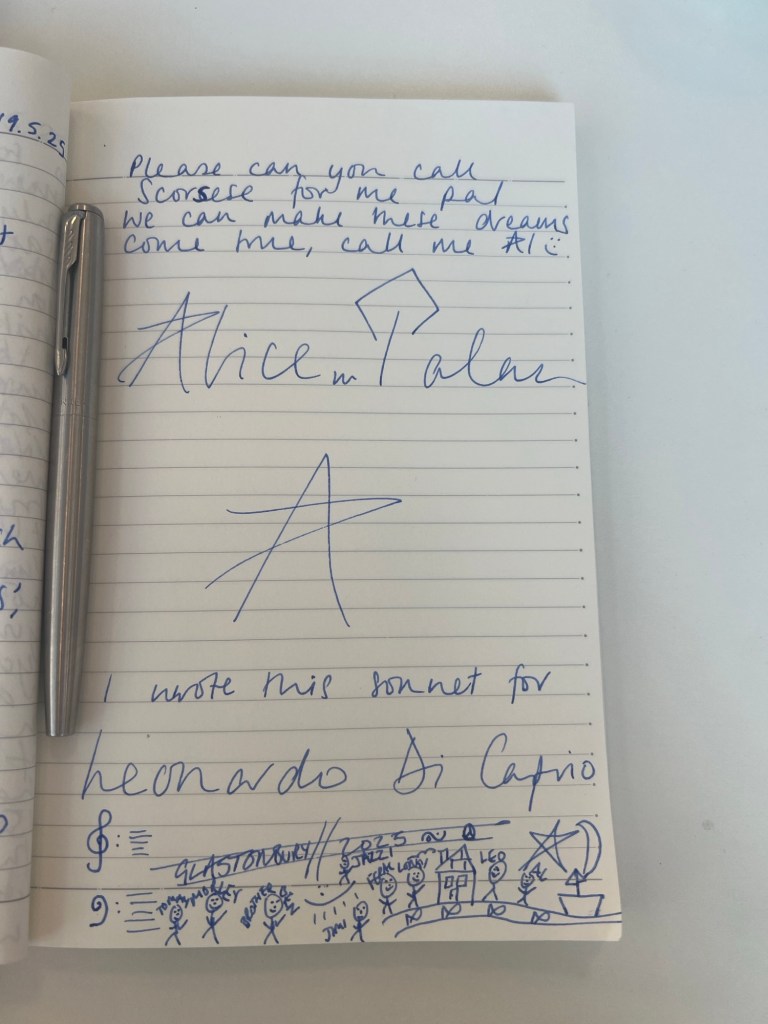 19.5.25
Please can you call
Scorsese for me pal
We can make these dreams
come true, call me Al
Alice in
A
I wrote this sonnet for
Leonardo Di Caprio
GLASTONBURY // 2025
JAZZI
LEO
TOMMY
BROTHER BEN
JIMI